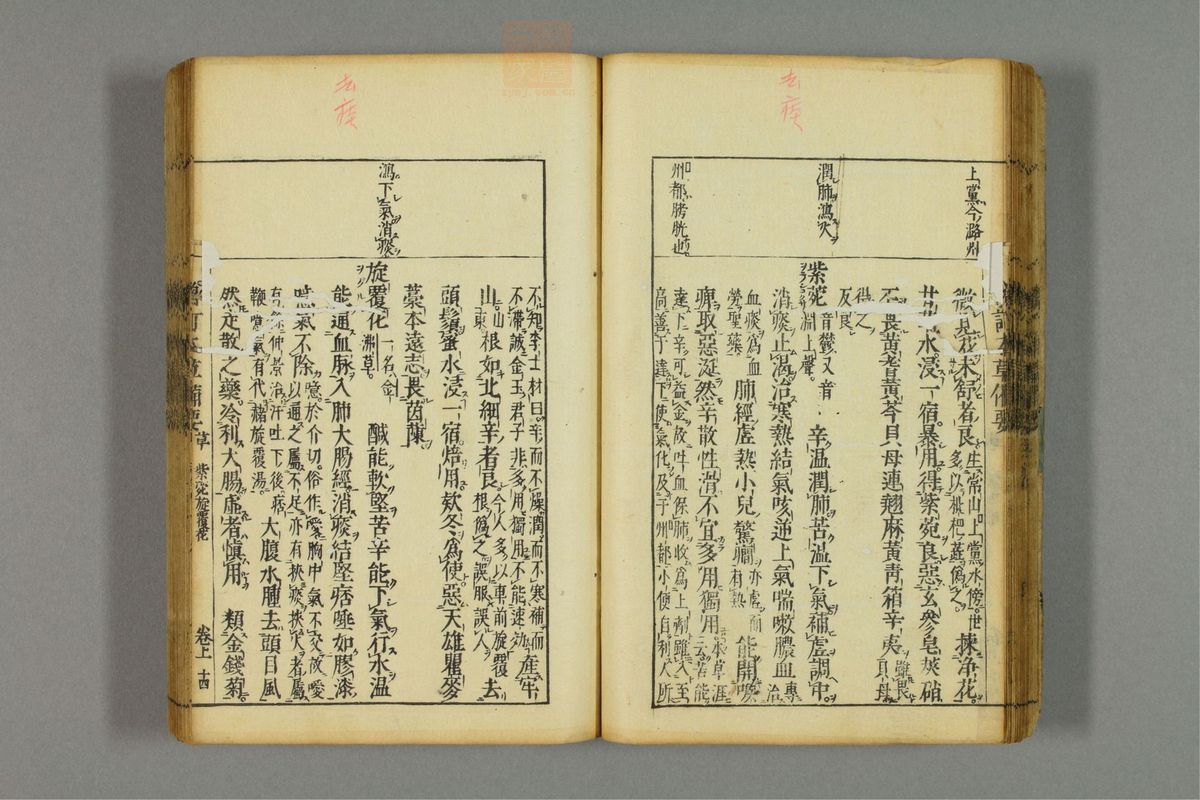 去痰
上黨今潞州
潤肺瀉火
州都膀胱也
微見花未舒者良
生常山上黨水傍世
多以枇杷蕋偽之
揀淨花
甘草水浸一宿暴用得紫菀良惡玄參皂莢硝
石畏黃耆黃芩貝母連翹麻黃青箱辛夷
雖畏貝母
得之
反良
紫菀
音鬱又音
淵上聲
辛温潤肺苦温下氣補虛調中
消痰止渴治寒熱結氣咳逆上氣喘嗽膿血
專治
血痰為血
勞聖藥
肺經虛熱小兒驚癎
亦虛而
有熱
能開喉
痹取惡涎然辛散性滑不宜多用獨用
本草滙
云苦能
達下辛可益金故吐血保肺收為上劑雖入至
高善于達下使氣化及于州都小便自利人所
去痰
瀉下氣消痰
不知李士材曰辛而不燥潤而不寒補而
不滯誠金玉君子非多用獨用不能速効
產牢
山
山東
根如北細辛者良
今人多以車前旋覆
根偽之誤服誤人
去
頭鬚蜜水浸一宿焙用欵冬為使惡天雄瞿麥
藁本遠志畏茵蔯
旋覆花
一名金
沸草
醎能軟堅苦辛能下氣行水温
能通血脉入肺大腸經消痰結堅痞唾如膠漆
噫氣不除
噫於介切俗作噯胸中氣不交故噯
以通之屬不足亦有挾痰挾火者屬
有餘仲景治汗吐下後痞
鞕噫氣有代赭旋覆湯
大腹水腫去頭目風
然走散之藥冷利大腸虛者慎用
類金錢菊
草
紫菀旋覆花
卷上
十四